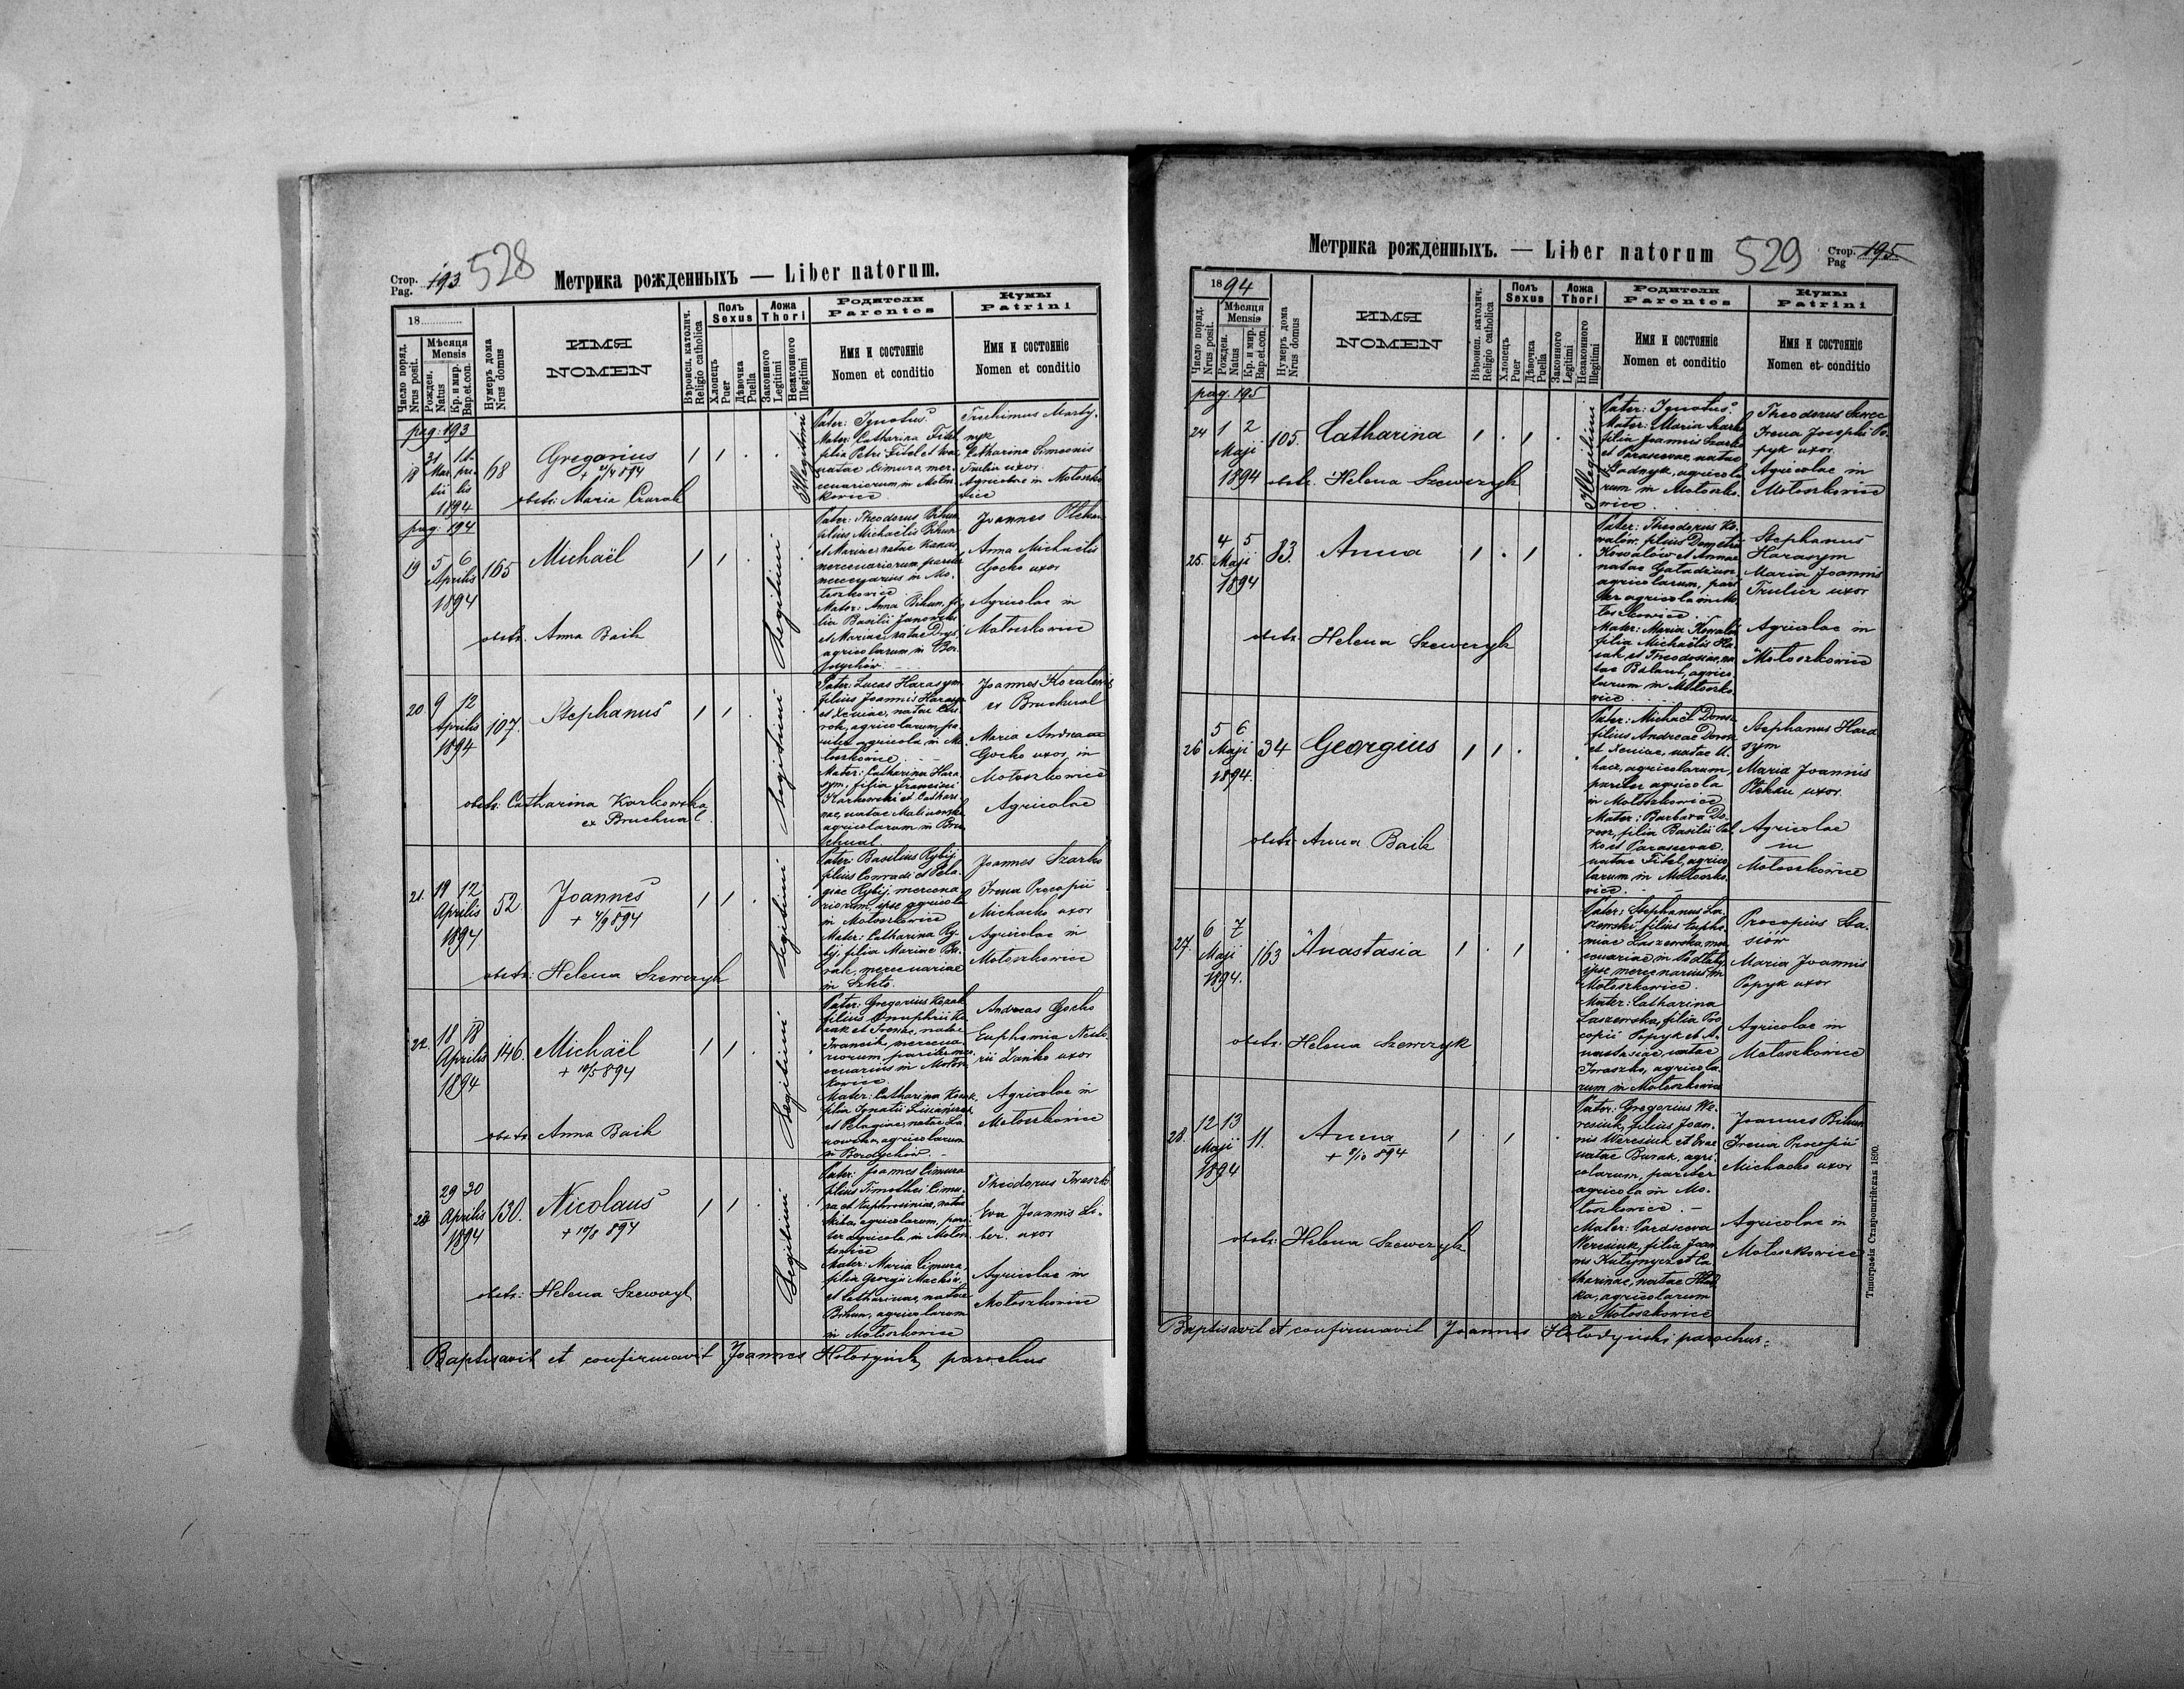 Стор. Pag. 193 528
Метрика рожденныхъ — Liber natorum.
18
Число поряд. Nrus posit.
Мѣсяця Mensis
Рожден. Natus
Кр. и мир. Bap. et. con.
Нумеръ дома Nrus domus
ИМЯ
NOMEN
Вѣроисп. католич. Religio catholica
Полъ Sexus
Хлопецъ Puer
Дѣвочка Puella
Ложа Thori
Законного Legitimi
Незаконного Illegitimi
Родители
Parentes
Имя и состояніе
Nomen et conditio
Кумы
Patrini
Имя и состояніе
Nomen et conditio
pag: 193
18 31 Martii 1 Aprilis 1894 68
Gregorius
obstr: Maria
Illegitimi
Pater: Ignotus
Mater: Catharina Fitel
filia Petri Fitel et Evae
natae Cimura, mer-
cenariorum in Motosz-
kowice
Trochimus Marty-
nyk
Catharina Simeonis
uxor
Agricolae in Motoszko
wice
pag: 194
19 5 6 Aprilis 1894 165
Michaël
obstr. Anna Baik
Legitimi
Pater: Theodorus Bihun
filius Michaëlis Bihun
et Mariae, natae
mercenariorum, pariter
mercenarius in Mo-
toszkowice
Mater: Anna Bihun, fi-
lia Basilii Janowski
et Mariae, natae
agricolarum in
Joannes
Anna Michaëlis
Gocko uxor
Agricolae in
Motoszkowice
20 9 12 Aprilis 1894 107.
Stephanus
obstr: Catharina Karkowska
ex Bruchnal
Legitimi
Pater: Lucas Harasym
filius Joannis Harasym
et Xeniae, natae
agricolarum, pa-
riter agricola in Mo
toszkowice
Mater: Catharina Hara
sym, filia Francisci
Karkowski et Cathari-
nae, natae
agricolarum in Bru
chnal
Joannes
ex Bruchnal
Maria Andreae
Gocko uxor, in
Motoszkowice
Agricolae
21. 19 12 Aprilis 1894 52
Joannes
+ 4/9 894
obstr: Helena Szewczyk
Legitimi
Pater: Basilius Rybij
filius Conradi et Pela-
giae Rybij, mercena
riorum, ipse agricola
in Motoszkowice
Mater: Catharina Ry-
bij, filia Mariae
mercenariae
in Szkło.
Joannes Szarko
Irena Procopii
Michacko uxor
Agricolae in
Motoszkowice
22. 18 18 Aprilis 1894 146.
Michaël
+ 10/5 894
obstr. Anna Baik
Legitimi
Pater: Gregorius Kozak
filius Onuphrii Ko
zak et Irenae, natae
Iwancik, mercena
riorum, pariter mer-
cenarius in Motosz-
kowice
Mater: Catharina Kozak
filia Ignatii
et Pelagiae, natae
agricolarum
Andreas Gocko
Euphemia
uxor
Agricolae in
Motoszkowice
23 29 30 Aprilis 1894 130.
Nicolaus
+ 10/8 894
obstr: Helena Szewczyk
Legitimi
Pater: Joannes Cimura
filius Timothei Cimu-
ra et Euphrosiniae, natae
agricolarum, pari-
ter agricola in Motosz
kowice
Mater: Maria Cimura,
filia Georgii
et Catharinae, natae
Bihun, agricolarum
in Motoszkowice
Theodorus Iwaszko
Eva Joannis Li-
ber. uxor
Agricolae in
Motoszkowice
Baptisavit et confirmavit Joannes Hołodyński, parochus
Метрика рожденныхъ. — Liber natorum 529 Стор. Pag 195
1894
Число поряд. Nrus posit.
Мѣсяця Mensis
Рожден. Natus
Кр. и мир. Bap. et. con.
Нумеръ дома Nrus domus
ИМЯ
NOMEN
Вѣроисп. католич. Religio catholica
Полъ Sexus
Хлопецъ Puer
Дѣвочка Puella
Ложа Thori
Законного Legitimi
Незаконного Illegitimi
Родители
Parentes
Имя и состояніе
Nomen et conditio
Кумы
Patrini
Имя и состояніе
Nomen et conditio
pag. 195
24 1 2 Maji 1894 105.
Catharina
obstr. Helena Szewczyk
Illegitimi
Pater: Ignotus.
Mater: Maria Szarko
filia Joannis Szarko
et Parascevae, natae
agricola
rum in Motoszko-
wice
Theodorus Szwec
Irena Josephi Po-
pyk uxor.
Agricolae in
Motoszkowice
25. 4 5 Maji 1894 83.
Anna
obstr. Helena Szewczyk
Pater: Theodorus Ko-
walów, filius Demetrii
Kowalów et Annae
natae
agricolarum, pari
ter agricola in Mo
toszkowice
Mater: Maria Kowalów
filia Michaëlis
et Theodosiae, na
tae Balaut, agrico-
larum in Motoszko
wice
Stephanus
Harasym
Maria Joannis
uxor
Agricolae in
Motoszkowice
26 5 6 Maji 1894. 34
Georgius
obstr. Anna Baik
Pater: Michaël Dorosz
filius Andreae Dorosz
et Xeniae, natae
agricolarum,
pariter agricola
in Motoszkowice
Mater: Barbara Do-
rosz, filia Basilii
et Parascevae,
natae Fitel, agrico
larum in Motoszko
wice.
Stephanus Hara
sym
Maria Joannis
uxor.
Agricolae
in
Motoszkowice
27. 6 7 Maji 1894. 163
Anastasia
obstr. Helena Szewczyk
Pater: Stephanus La-
szewski filius Euphe-
miae Laszewska, mer
cenariae in
ipse mercenarius in
Motoszkowice.
Mater: Catharina
Laszewska, filia Pro
copii Popyk et A-
nastasiae, natae
Iwaszko, agricola
rum in Motoszkowice
Procopius Sta-
siów
Maria Joannis
Popyk uxor
Agricolae in
Motoszkowice
28. 12 13 Maji 1894 11.
Anna
+ 8/10 894
obstr. Helena Szewczyk
Pater: Gregorius We-
resiuk, filius Joan-
nis Weresiuk et Evae
natae Burak, agri-
colarum, pariter
agricola in Mo-
toszkowice. —
Mater: Parasceva
Weresiuk, filia Joan
nis et Ca
tharinae, natae
agricolarum
in Motoszkowice
Joannes Bihun
Irena Procopii
Michacko uxor
Agricolae in
Motoszkowice
Baptisavit et confirmavit Joannes Hołodyński parochus.
Типографія Ставропигійская 1890.